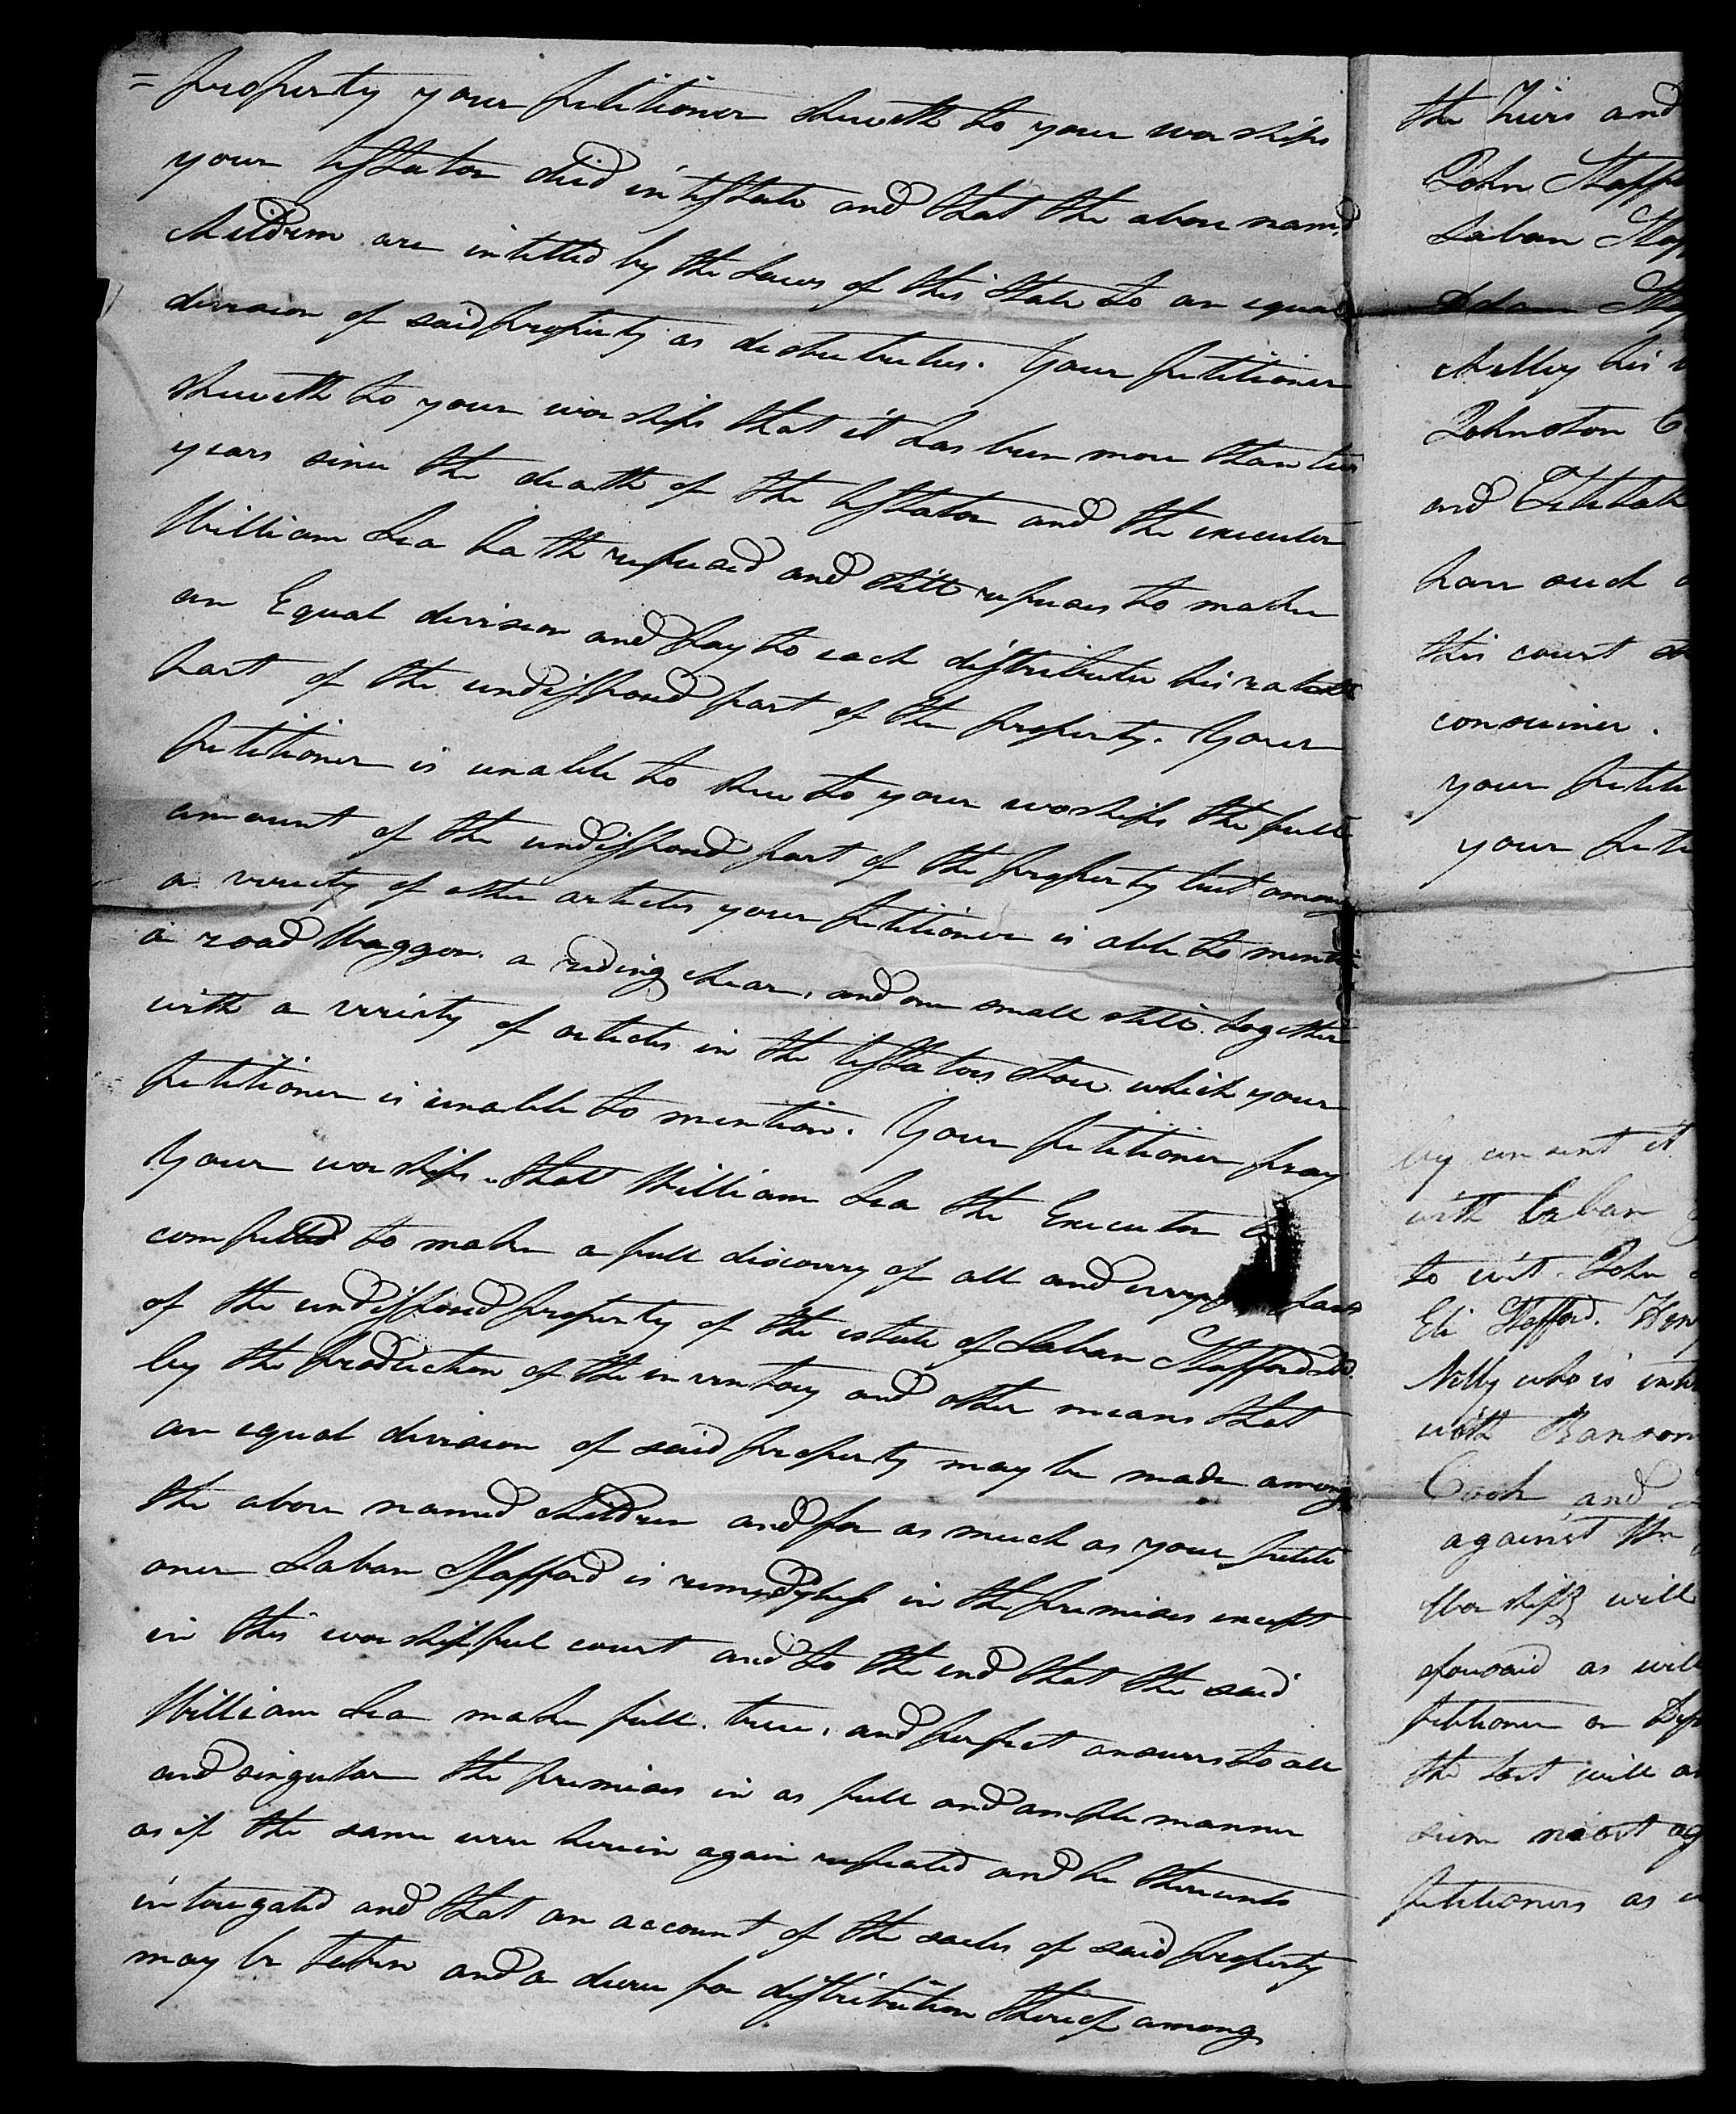 = property your petitioner sheweth to your worships
your testator died intestate and that the above nam'd
children are intitled by the Laws of this State to an equal
division of said property as distributees. Your petitioner
sheweth to your worships that it has been more than two
years since the death of the testator and the executor
William Lea hath refused and still refuses to make
an Equal division and pay to each distributee his ratable
part of the undisposed part of the property. Your
petitioner is unable to shew to your worships the full
amount of the undisposed part of the property but among
a variety of other articles your petitioner is able to mention
a road Waggon. a riding chear, and one small still. together
with a variety of articles in the testators store which your
petitioner is unable to mention. Your petitioner pray
Your worships that William Lea the Executor
compelled to make a full discovery of all and every part
of the undisposed property of the estate of Laban Stafford decd.
by the production of the inventory and other means that
an equal division of said property may be made among
the above named children and for as much as your petiti
oner Laban Stafford is remedyless in the premises except
in this worshipful court and to the end that the said
William Lea make full. true, and perfect answers to all
and singular the premises in as full and ample manner
as if the same were herein again repeated and he thereunto
interogated and that an account of the sales of said property
may be taken and a decree for distribution thereof among
the heirs and
John Staffo
Laban Staf
Adam Staf
his
Johnston
and
have such
this court
conscience.
your petiti
your peti
by consent it
with Laban
to wit. John
Eli Stafford.
Nelly who is
with Ransom
Cook and
against Wm
Worships will
aforesaid as will
petitioner on
the last will an
sum most ag
petitioners as